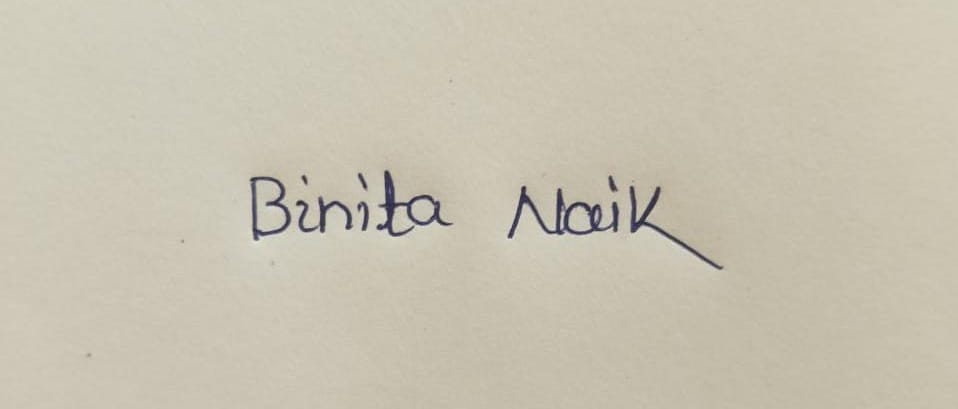 Binita Naik